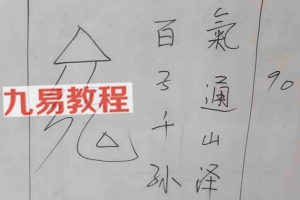 氣通山泽
百子千孙
90
九易教程